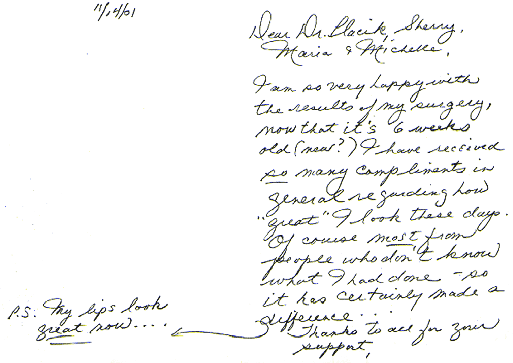 11/14/01
Dear Dr. Placik, Sherry,
Maria & Michelle,
I am so very happy with
the results of my surgery,
now that it's 6 weeks
old (new?) I have received
so many compliments in
general regarding how
"great" I look these days.
Of course most from
people who don't know
what I had done - so
it has certainly made a
difference...
Thanks to all for your
support,
P.S. My lips look
great now....